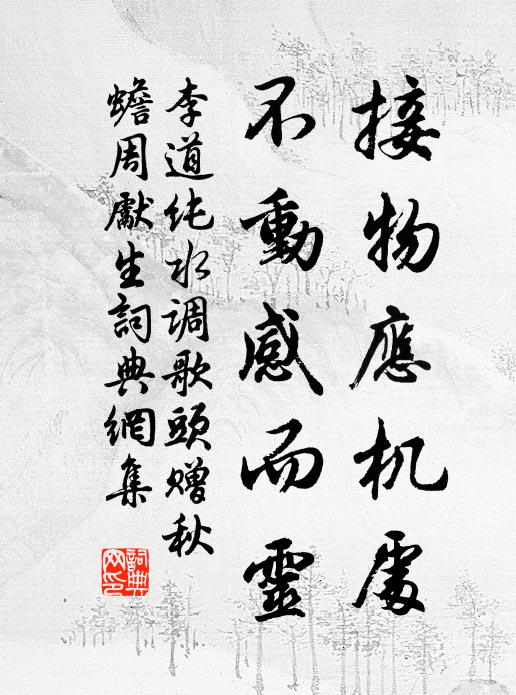 接物應机處
不動感而靈
李道纯水调歌頭赠秋
蟾周獻生詞典網集
詞典网印